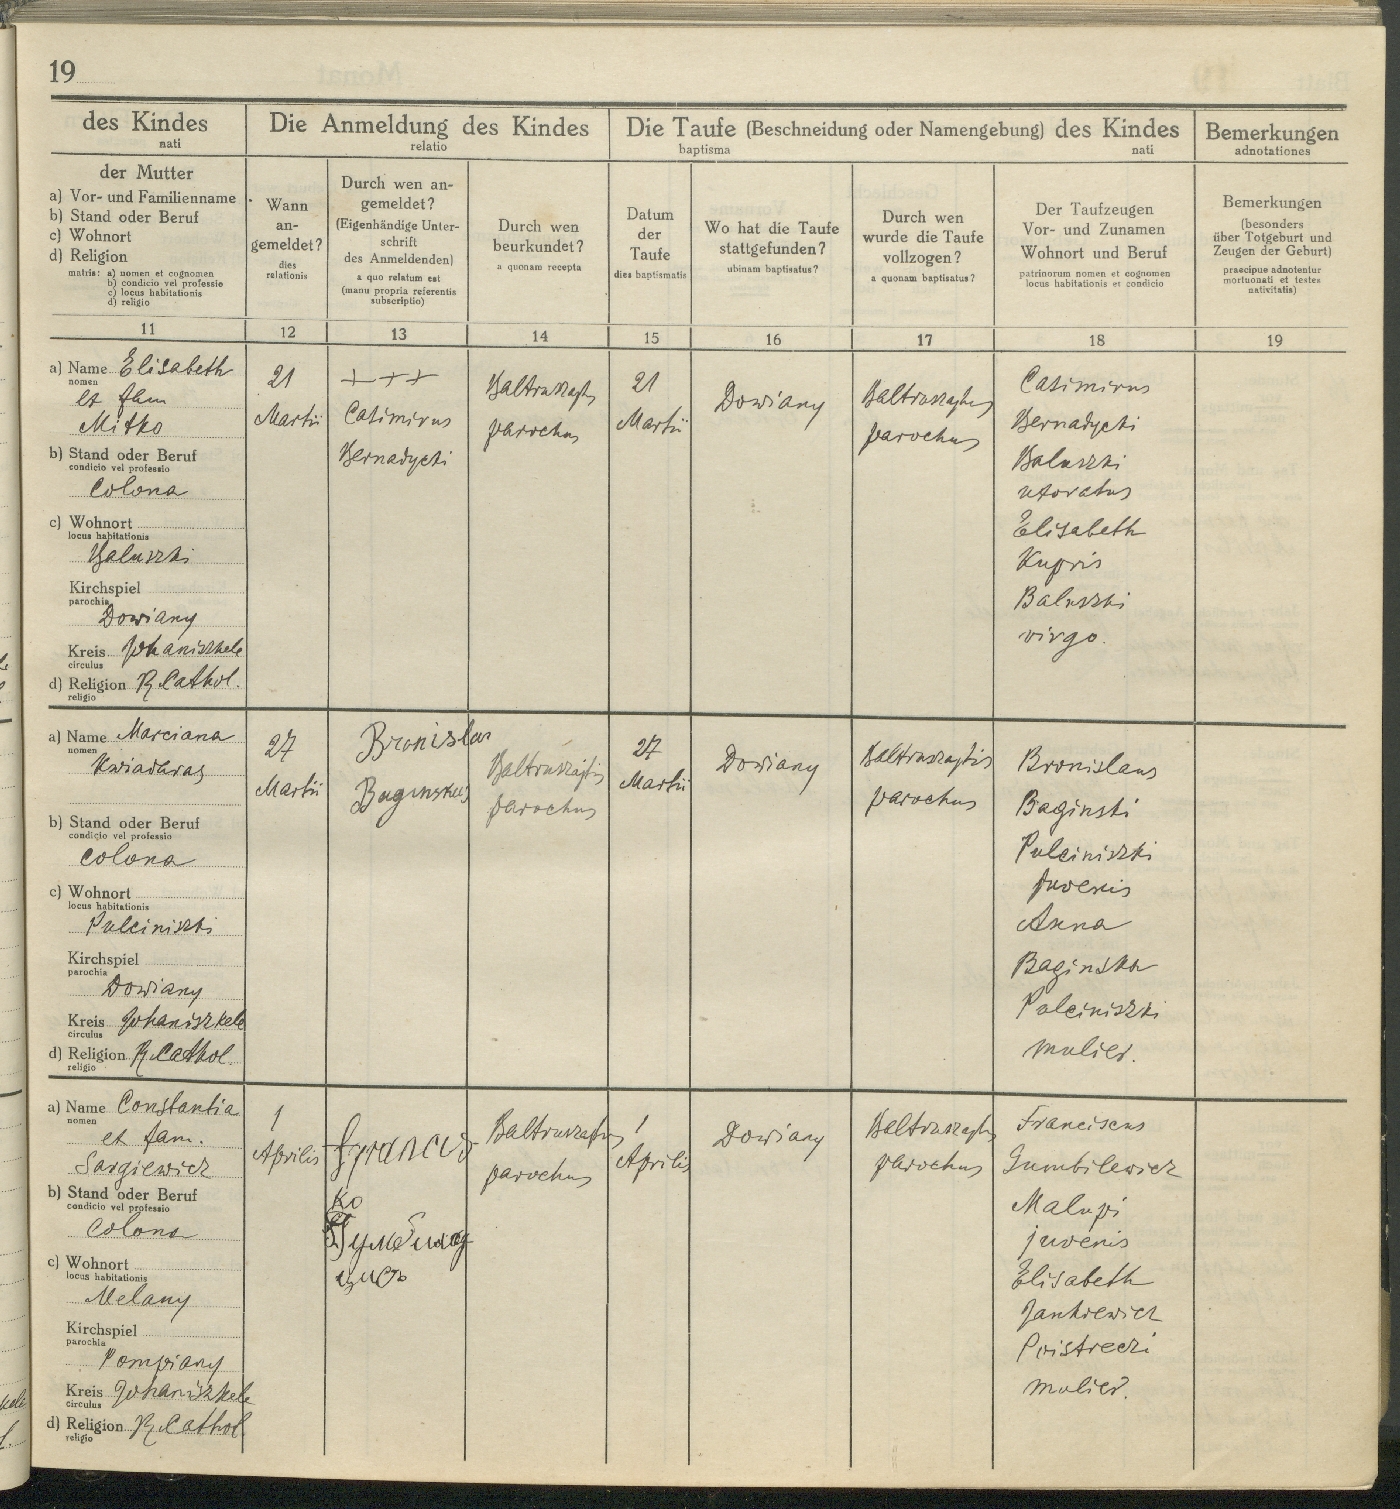 19
des Kindes
nati
Die Anmeldung des Kindes
relatio
Die Taufe (Beschneidung oder Namengebung) des Kindes
baptisma nati
Bemerkungen
adnotationes
der Mutter
a) Vor- und Familienname
b) Stand oder Beruf
c) Wohnort
d) Religion
matris: a) nomen et cognomen
b) condicio vel professio
c) locus habitationis
d) religio
Wann
an-
gemeldet?
dies
relationis
Durch wen an-
gemeldet?
(Eigenhändige Unter-
schrift
des Anmeldenden)
a quo relatum est
(manu propria referentis
subscriptio)
Durch wen
beurkundet?
a quonam recepta
Datum
der
Taufe
dies baptismatis
Wo hat die Taufe
stattgefunden?
ubinam baptisatus?
Durch wen
wurde die Taufe
vollzogen?
a quonam baptisatus?
Der Taufzeugen
Vor- und Zunamen
Wohnort und Beruf
patrinorum nomen et cognomen
locus habitationis et condicio
Bemerkungen
(besonders
über Totgeburt und
Zeugen der Geburt)
praecipue adnotentur
mortuonati et testes
nativitatis)
11 12 13 14 15 16 17 18 19
a) Name Elisabeth
nomen
et fam
Mitko
b) Stand oder Beruf
condicio vel professio
Colona
c) Wohnort
locus habitationis
Baluszki
Kirchspiel
parochia
Dowiany
Kreis Johaniszkele
circulus
d) Religion R Cathol.
religio
21
Martii
+++
Casimirus
Bernadycki
Baltruszajtis
parochus
21
Martii
Dowiany
Baltruszajtis
parochus
Casimirus
Bernadycki
Baluszki
uxoratus
Elisabeth
Kupris
Baluszki
virgo.
a) Name Marciana
nomen
b) Stand oder Beruf
condicio vel professio
Colona
c) Wohnort
locus habitationis
Pulciniszki
Kirchspiel
parochia
Dowiany
Kreis Johaniszkele
circulus
d) Religion R Cathol
religio
27
Martii
Bronislav
Baltruszajtis
parochus
27
Martii
Dowiany
Baltruszajtis
parochus
Bronislaus
Baginski
Pulciniszki
juvenis
Anna
Baginska
Pulciniszki
mulier.
a) Name Constantia
nomen
et fam.
Sargiewicz
b) Stand oder Beruf
condicio vel professio
Colona
c) Wohnort
locus habitationis
Melany
Kirchspiel
parochia
Pompiany
Kreis Johaniszkele
circulus
d) Religion R Cathol.
religio
1
Aprilis
Baltruszajtis
parochus
1
Aprilis
Dowiany
Baltruszajtis
parochus
Franciscus
Gumbilewicz
Malupi
juvenis
Elisabeth
Jankiewicz
mulier.